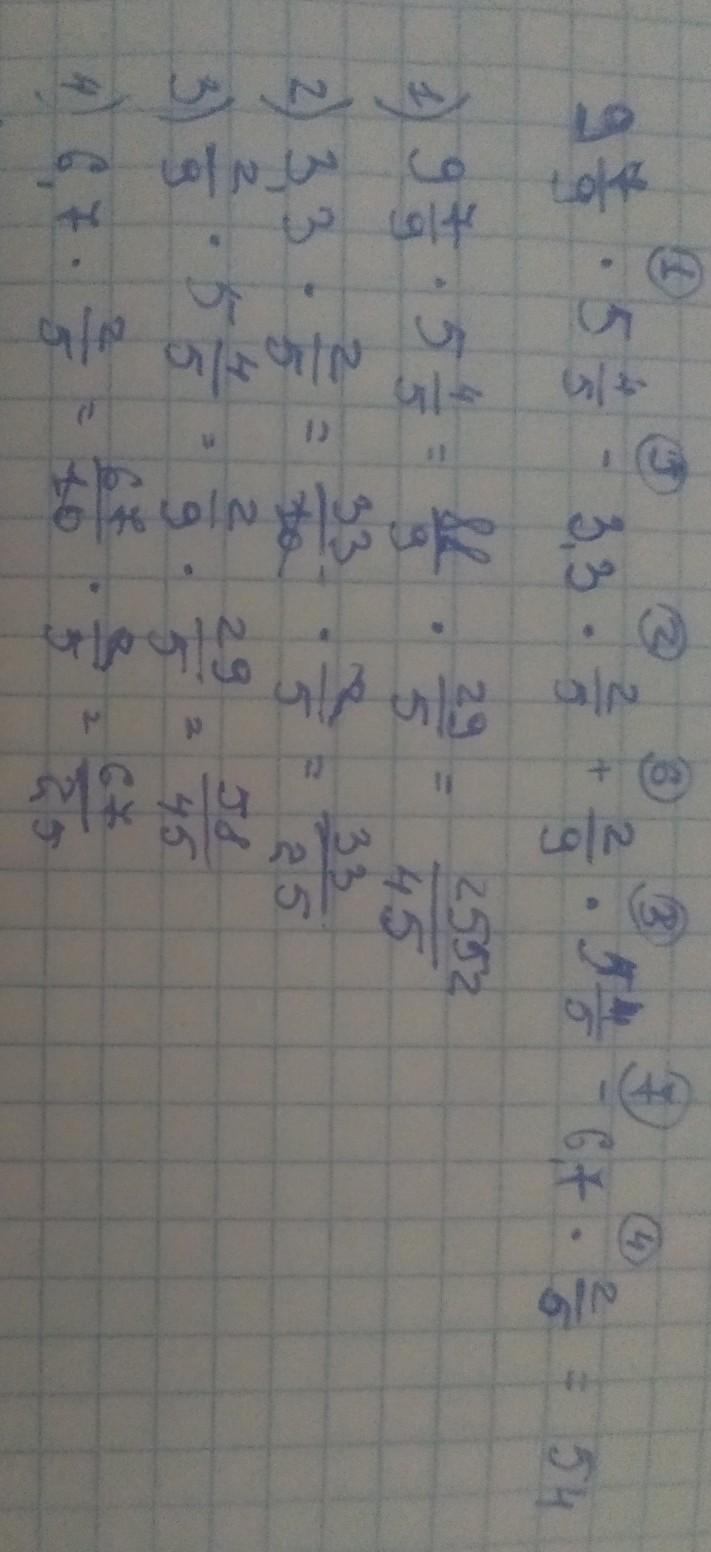 ① ⑤ ② ⑥ ③ ⑦ ④
9 7/9 · 5 4/5 - 3,3 · 2/5 + 2/9 · 5 4/5 - 6,7 · 2/5 = 54
1) 9 7/9 · 5 4/5 = 88/9 · 29/5 = 2552/45
2) 3,3 · 2/5 = 33/10 · 2/5 = 33/25
3) 2/9 · 5 4/5 = 2/9 · 29/5 = 58/45
4) 6,7 · 2/5 = 67/10 · 2/5 = 67/25